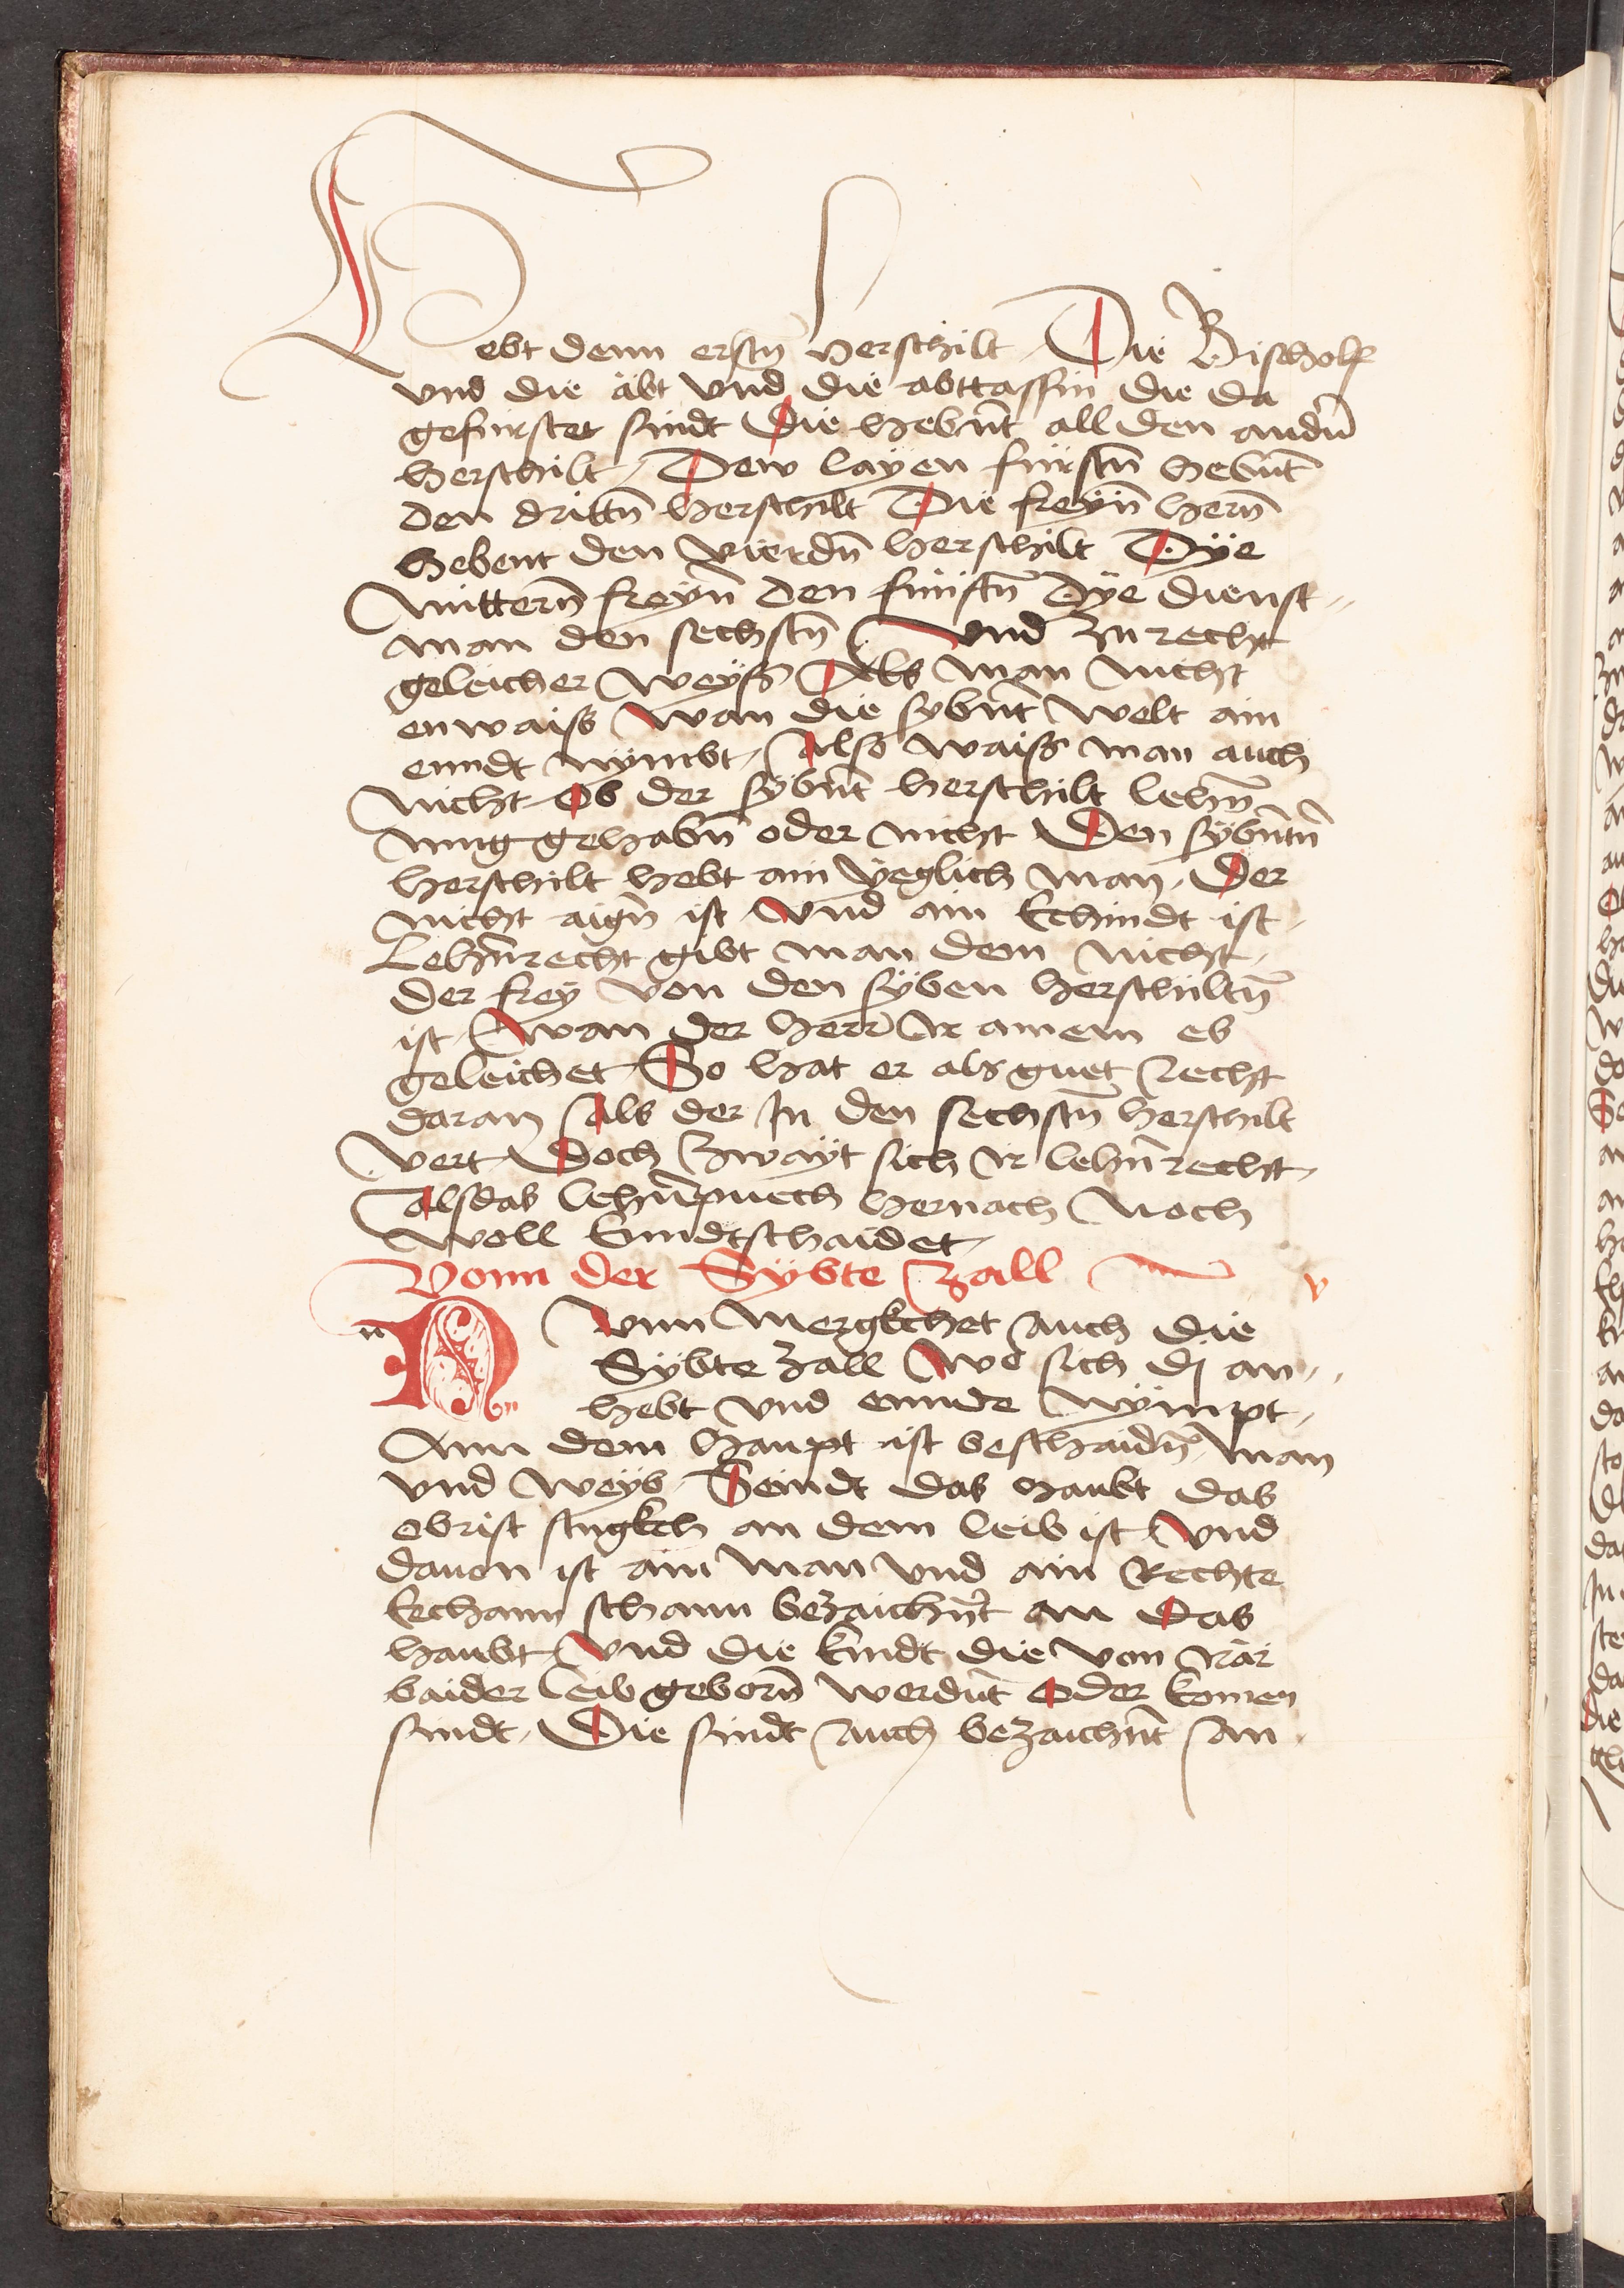 Hebt denn erstn̄ herschilt Die Bischolf
vnd die äbt vnd die abttassin die da
gefürstet sindt Die hebnt̄ all den andn̄
herschilt Dew layen fürstn̄ hebnt̄
den drittn̄ herschilt Die freyn̄ hern̄
hebent den vierdn̄ herschilt Dÿe
mittern̄ freyn̄ den fünftn̄ Dÿe dienst„
man den sechstn̄ Vnd zu recht
geleicher weyß Als man nicht
enwaiß wan die sybnt̄ welt ain
enndt nÿmbt Also waiß man auch
nicht Ob der sÿbnt̄ herschilt lehn̄
nung gehabn̄ oder nicht Den sybn̄tn̄
herschilt hebt ain ÿeglich man Der
nicht aign̄ ist Vnd ain kchindt ist
Lehn̄recht gibt man dem nicht
der frey von den sÿben herschiltn̄
ist Wan der herr Ir ainem es
geleichet So hat er als guet recht
daran Als der In den sechstn̄ herschilt
vert Doch zwaÿt sich Ir lehn̄recht
Als das lehn̄puech hernach noch
woll kundtschaidet
Vonn der Sÿbte zall v
n Nunn Mergkchet Auch die
Sÿbte zall Wo sich dj an„
hebt vnd ennde nÿmpt
Ann dem haupt ist beschaidn̄ man
vnd weÿb Seindt das haubt das
obrist stugkch an dem leib ist Vnd
dauon ist ain man vnd ain Rechte
kchann schann bezaichn̄t an Das
haubt Vnd die kindt die von Irär
baider leib geborn̄ werdnt̄ Oder komen
sindt Die sindt Auch bezaichnt̄ An